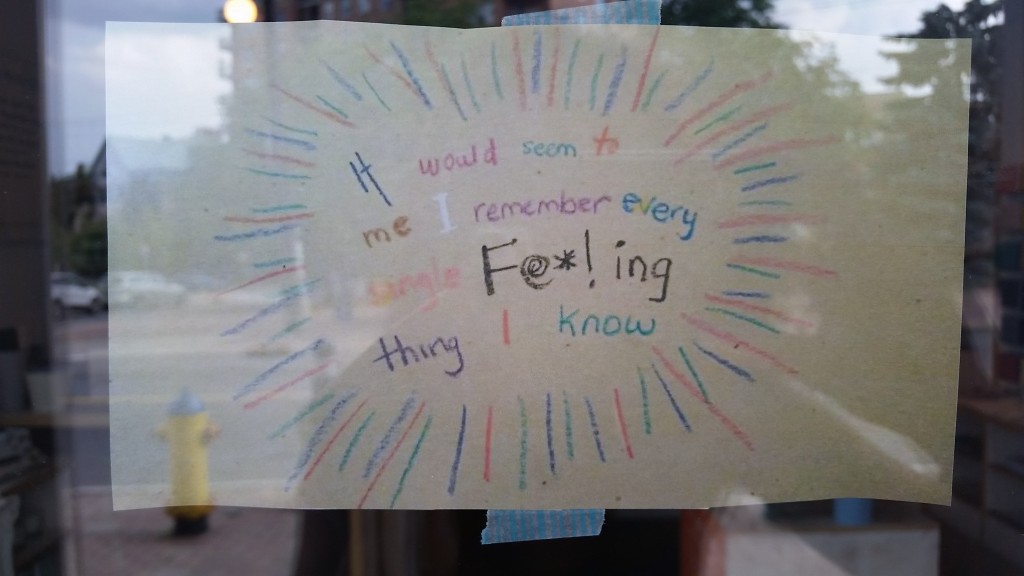 It would seem to
me I remember every
single F@*! ing
thing I know